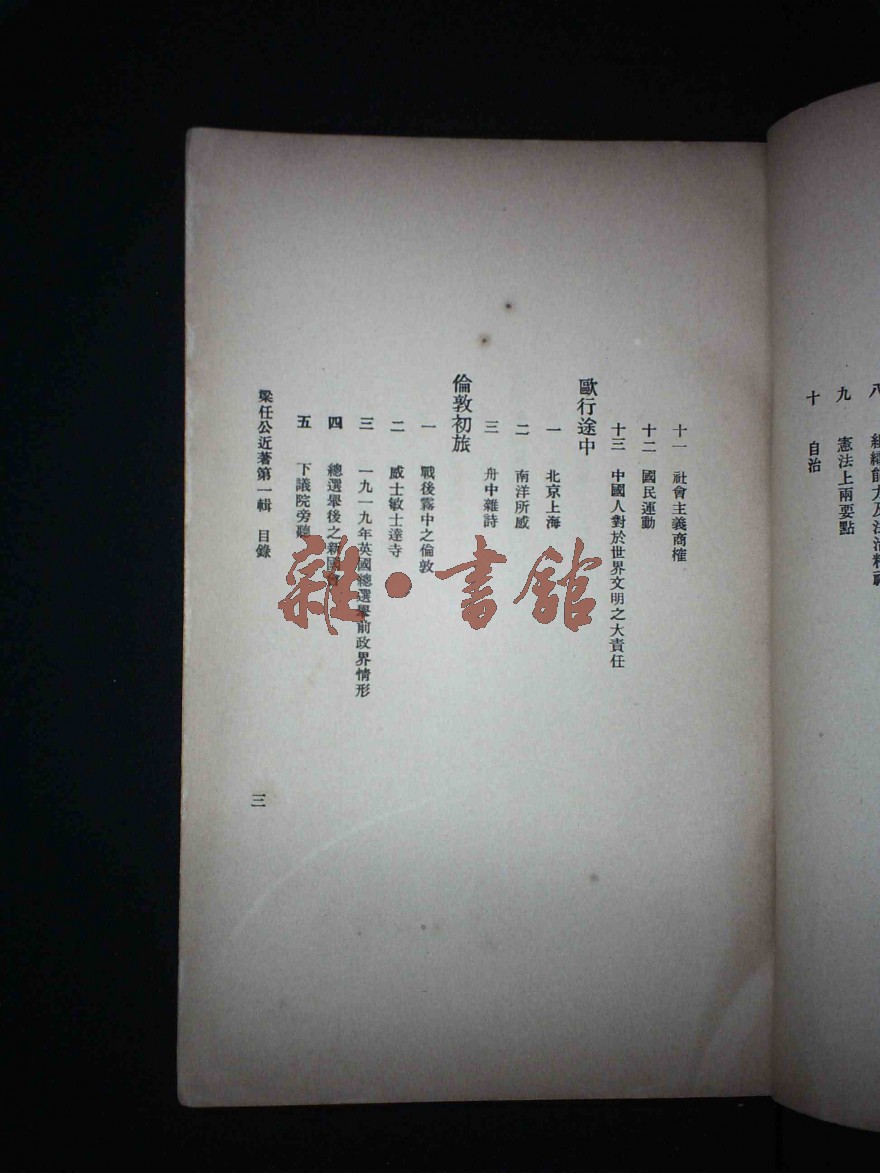 九 憲法上兩要點
十 自治
十一 社會主義商榷
十二 國民運動
十三 中國人對於世界文明之大責任
歐行途中
一 北京上海
二 南洋所感
三 舟中雜詩
倫敦初旅
一 戰後霧中之倫敦
二 威士敏士達寺
三 一九一九年英國總選舉前政界情形
四 總選舉後之新國
五 下議院旁聽
梁任公近著第一輯 目錄
三
雜·書館